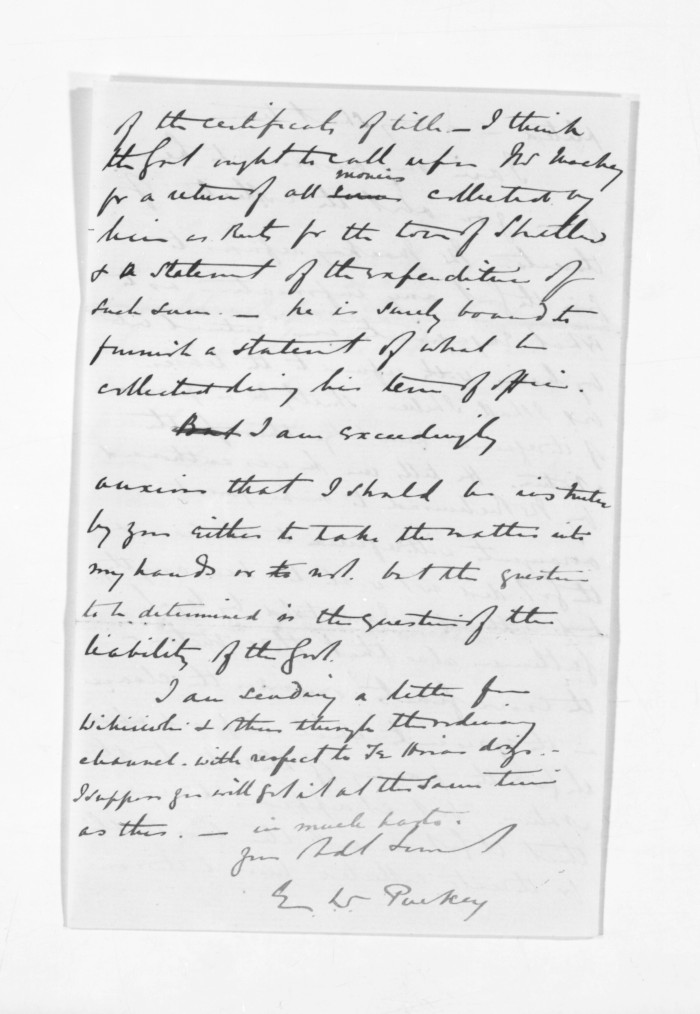 of the certificate of title — I think
the Govt ought to call upon Mr Mackey
for a return of all monies collected by
him as Rents for the town of Shortland
& a statement of the expenditure of
such sum. — he is surely bound to
furnish a statement of what he
collected during his term of office.
But I am exceedingly
anxious that I should be instructed
by you either to take the matter into
my hands or to not. but the question
to be determined is the question of the
liability of the Govt.
I am sending a letter from
& others through the ordinary
channel. with respect to Te dogs. —
I suppose you will get it at the same time
as this. — in much haste.
your Obdt Servt
E W Puckey